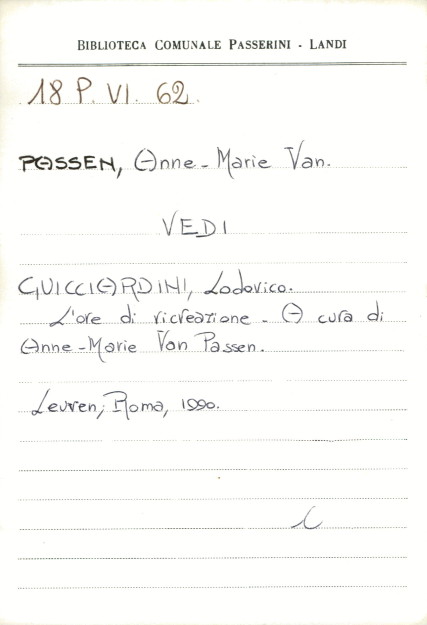 BIBLIOTECA COMUNALE PASSERINI - LANDI
18 P. VI. 62.
PASSEN, Anne-Marie Van.
VEDI
GUICCIARDINI, Lodovico.
L'ore di ricreazione - A cura di
Anne-Marie Van Passen.
Leuven; Roma, 1990.